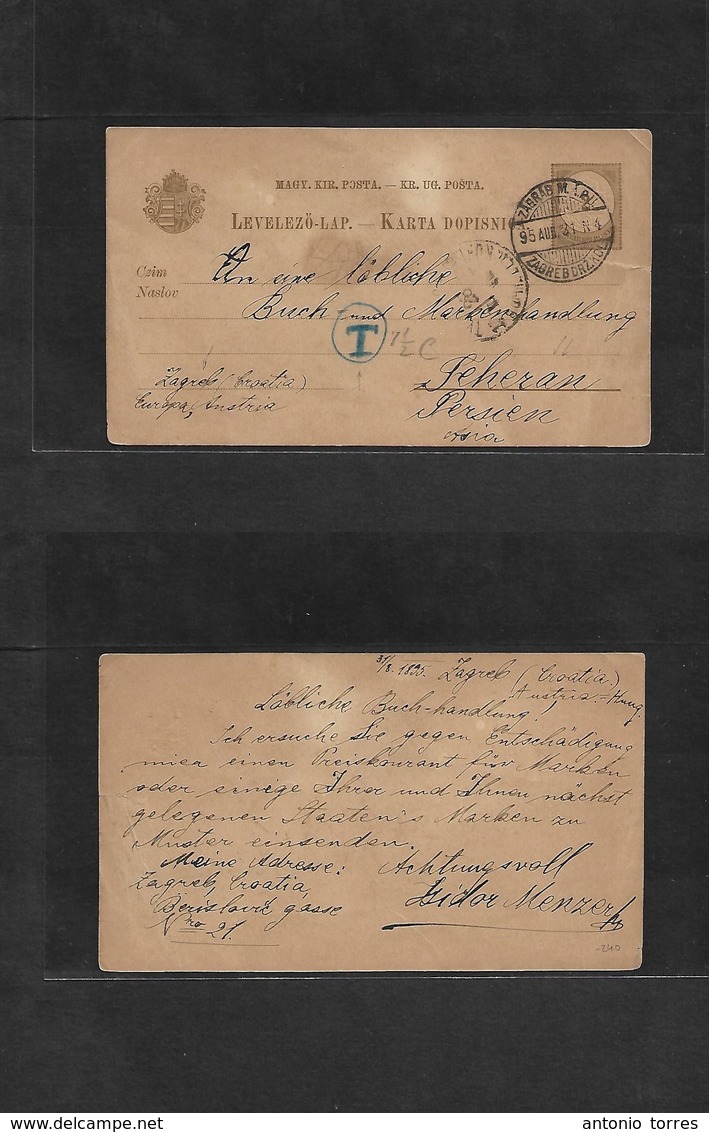 MAGY. KIR. POSTA. — KR. UG. POŠTA.
LEVELEZŐ-LAP. — KARTA DOPISNIC
ZAGRAB M.
95 AUG. 31
ZAGREB DRŽ. KOL
Czim
Naslov
An eine löbliche
Buch- und Markenhandlung
T
7½ C
Teheran
Persien
Asia
Zagreb (Croatia)
Europa, Austria
31/8. 1895. Zagreb (Croatia.)
Austria-Hung.
Löbliche Buch-handlung!
Ich ersuche Sie gegen Entschädigung
mier einen Preiskourant für Marken
oder einige Ihrer und Ihnen nächst
gelegenen Staaten's Marken zu
Muster einsenden.
Meine Adresse: Achtungsvoll
Zagreb, Croatia, Isidor Menzer
Berislavić gasse
Nro 21.
-240
antonio torres